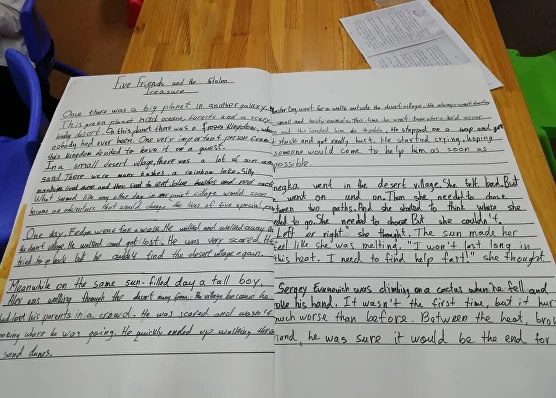 Five Friends and the Stolen
treasure
Once there was a big planet in another galaxy.
This green planet had oceans, forests and a scary
lonely desert. On this planet there was a frozen Kingdom, where
nobody had ever been. One very important person from
this kingdom decided to leave it on a quest.
In a small desert village, there was a lot of sun and
sand. There were many bushes, a rainbow lake. Silly
lived there and they used to eat blue
What seemed like any other day in village would soon
become an adventure that would change the lives of five special
One day, Fedya went for a walk. He walked and walked away
the desert village. He walked and got lost. He was very scared. He
tried to go back but he couldn't find the desert village again.
Meanwhile on the same sun-filled day a tall boy,
Alex was walking through the desert away from the village because he
had lost his parents in a crowd. He was scared and wasn't
looking where he was going. He quickly ended up walking
sand dunes.
went for a walk outside the desert village. He always wanted
small and tasty
and this landed him in trouble. He stepped on a and got
stuck and got really hurt. He started crying, hoping
someone would come to help him as soon as
possible.
went in the desert village. She felt bad. But
went on and on. Then she needed to choose
between two paths. And she started to think where she
to go. She needed to choose. But she couldn't.
"Left or right" she thought. The sun made her
feel like she was melting. "I won't last long in
this heat. I need to find help fast!" she thought.
Sergey Evanovich was climbing on a cactus when he fell and
broke his hand. It wasn't the first time, but it hurt
much worse than before. Between the heat,
hand, he was sure it would be the end for